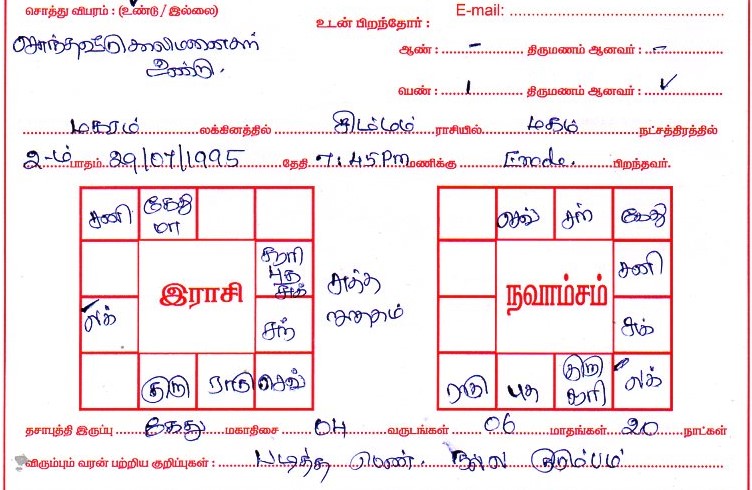 சொத்து விபரம் : (உண்டு / இல்லை) E-mail:
உடன் பிறந்தோர் :
ஆண் : - திருமணம் ஆனவர் : -
உண்டு.
பெண் : 1 திருமணம் ஆனவர் : ✓
மகரம் லக்கினத்தில் சிம்மம் ராசியில் மகம் நட்சத்திரத்தில்
2-ம் பாதம் 29/07/1995 தேதி 7:45 Pm மணிக்கு Erode. பிறந்தவர்.
சனி கேது மா
செவ் சுக் கேது
சூரி புத சுக்
சனி
இராசி
நவாம்சம்
லக் சந்
சுக்
குரு ராகு செவ்
ராகு புத குரு சூரி லக்
தசாபுத்தி இருப்பு கேது மகாதிசை 04 வருடங்கள் 06 மாதங்கள் 20 நாட்கள்
விரும்பும் வரன் பற்றிய குறிப்புகள் : படித்த பெண். நல்ல குடும்பம்